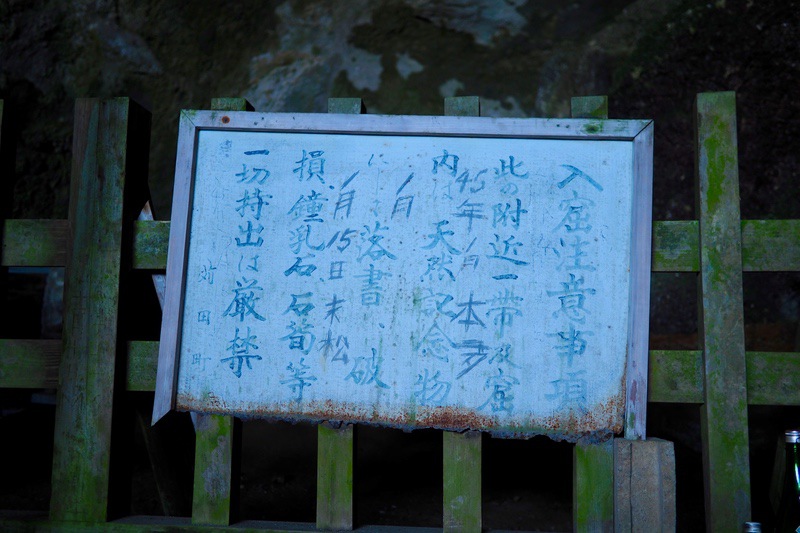 入窟注意事項
此の附近一帯及窟
45年1月 本多
内は 天然記念物
1月
落書 破
1月15日 末松
損 鐘乳石 石筍等
一切持出は厳禁
苅田町